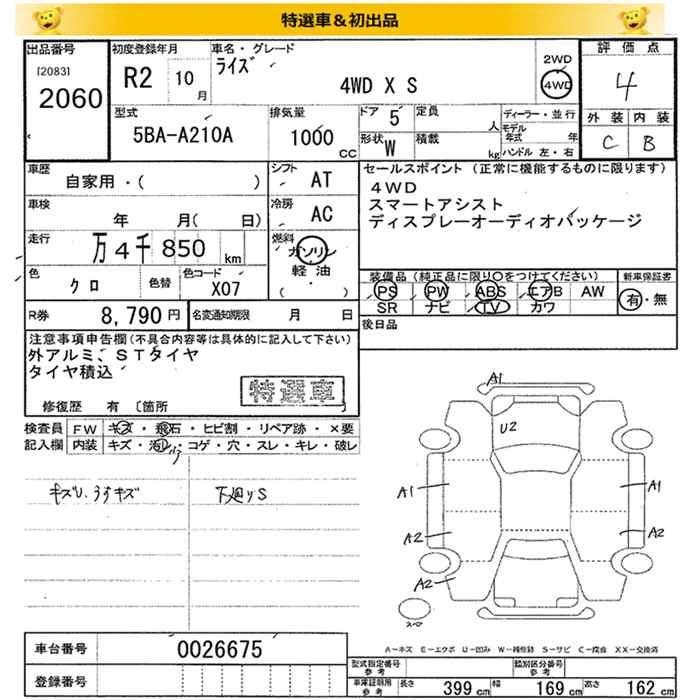 特選車&初出品
出品番号
[2083]
2060
初度登録年月
R2 10月
車名・グレード
ライズ
4WD X S
2WD
4WD
評価点
4
外装 内装
C B
型式
5BA-A210A
排気量
1000 CC
ドア 5
定員 人
形状 W
積載 kg
ディーラー・並行
モデル年式 年
ハンドル 左・右
車歴
自家用・( )
シフト AT
車検
年 月( 日)
冷房 AC
走行
万4千850 km
燃料
ガソリン
軽油
・( )
色
クロ
色替
色コード
X07
R券
8,790円
名変通知期限 月 日
セールスポイント (正常に機能するものに限ります)
4WD
スマートアシスト
ディスプレーオーディオパッケージ
装備品(純正品に限り○をつけてください)
PS PW ABS エアB AW
SR ナビ TV カワ
新車保証書
有・無
後日品
注意事項申告欄(不具合内容等は具体的に記入して下さい)
外アルミ、STタイヤ
タイヤ積込
特選車
修復歴 有 〔箇所
検査員記入欄
FW キズ・飛石・ヒビ割・リペア跡・×要
内装 キズ・汚レ・コゲ・穴・スレ・キレ・破レ
キズU、うすキズ
下廻りS
A1
U2
A1
A1
A2
A2
A2
A-キズ E-エクボ U-凹み W-補修跡 S-サビ C-腐食 XX-交換済
車台番号 0026675
登録番号
型式指定番号 参考
類別区分番号 参考
車庫証明用 参考
長さ 399 cm 幅 169 cm 高さ 162 cm